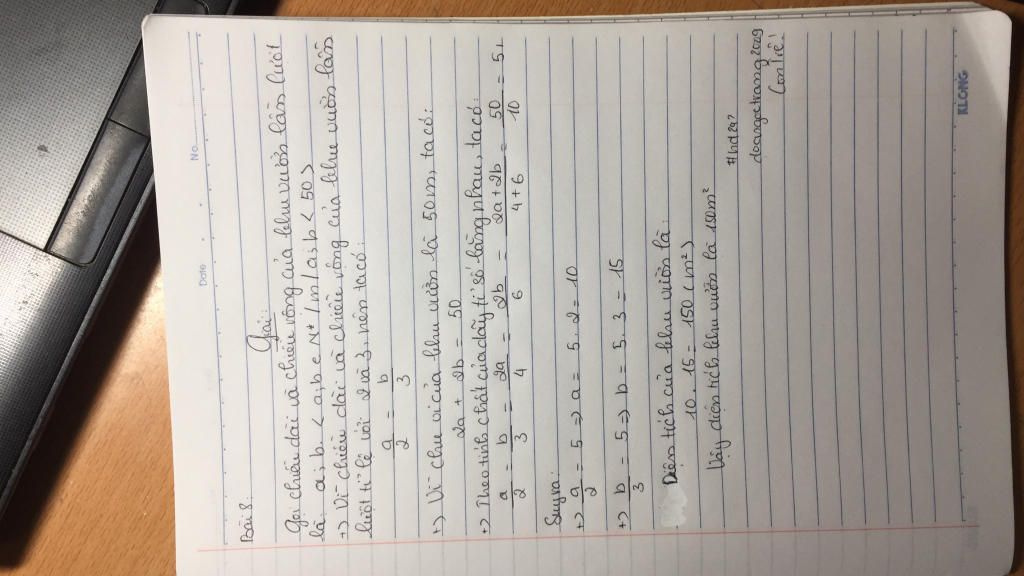 No.
Date
Bài 8:
Giải:
Gọi chiều dài và chiều rộng của khu vườn lần lượt
là a; b < a; b ∈ N* / m / a; b < 50 >
+) Vì chiều dài và chiều rộng của khu vườn lần
lượt tỉ lệ với 2 và 3, nên ta có:
a/2 = b/3
+) Vì chu vi của khu vườn là 50m, ta có:
2a + 2b = 50
+) Theo tính chất của dãy tỉ số bằng nhau, ta có:
a/2 = b/3 = 2a/4 = 2b/6 = (2a + 2b)/(4 + 6) = 50/10 = 5,
Suy ra:
+) a/2 = 5 => a = 5 . 2 = 10
+) b/3 = 5 => b = 5 . 3 = 15
Diện tích của khu vườn là:
10 . 15 = 150 (m²)
Vậy diện tích khu vườn là 150m²
doangetrang2009
KLONG